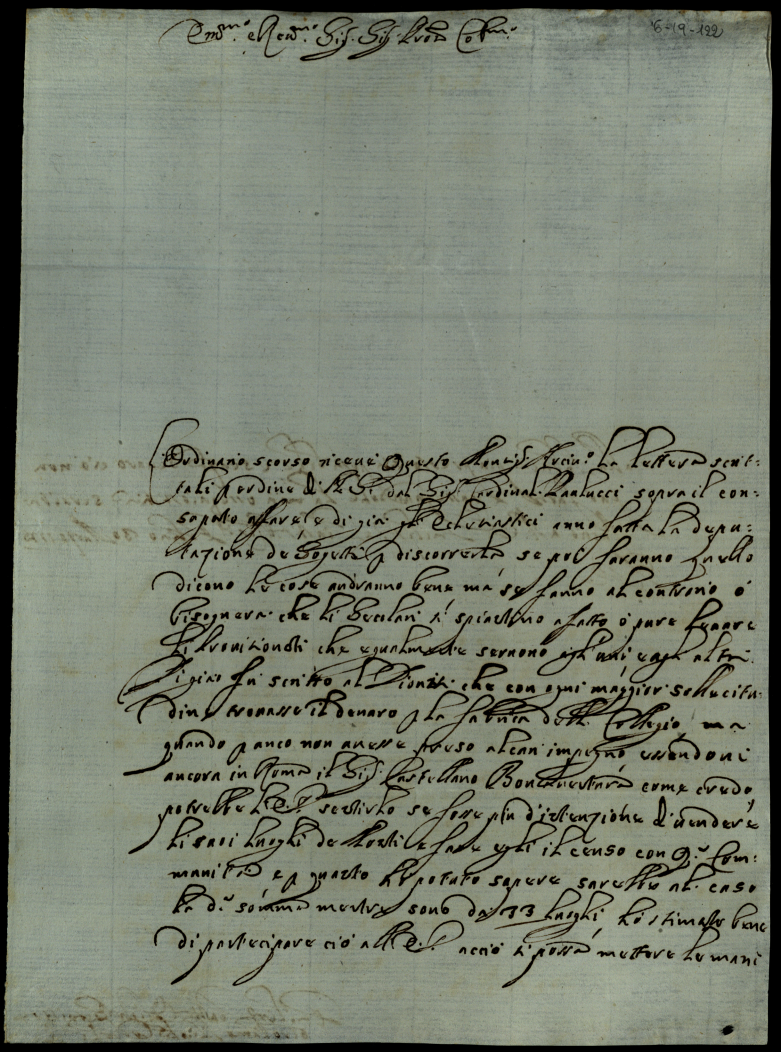 Em.mo e Rev.mo Sig. Sig. Pron Col.mo
6-19-122
L'Ordinario scorso riceuè questo Monsig. Arciu.o la lettera scrit-
tali p ordine di S. S.tà dal Sig. Cardinal Paulucci sopra il con-
saputo affare e di già gl'Ecclesiastici anno fatta la depu-
tazione de Sogetti p discorrerla se poi faranno quello
dicono le cose andranno bene mà se fanno al contrario ò
bisognerà che li Secolari si spiantino afatto ò pure leuare
li Prouisionati che egualmente seruono agl'uni e agl'altri.
Di già fù scritto al che con ogni maggior sollecitu-
dine trouasse il denaro p la fabrica dell Collegio, ma
quando p anco non auesse preso alcun impegno essendoui
ancora in Roma il Sig. Castellano credo
potrebbe l'E. V. sentirlo se fosse più d'intenzione di uendere
li suoi luoghi de Monti e fare egli il censo con q.a Com-
munità e p quanto hò potuto sapere sarebbe al caso
la d.a somma mentre sono da 33 luoghi, hò stimato bene
di partecipare ciò all'E. V. acciò si possa mettere le mani